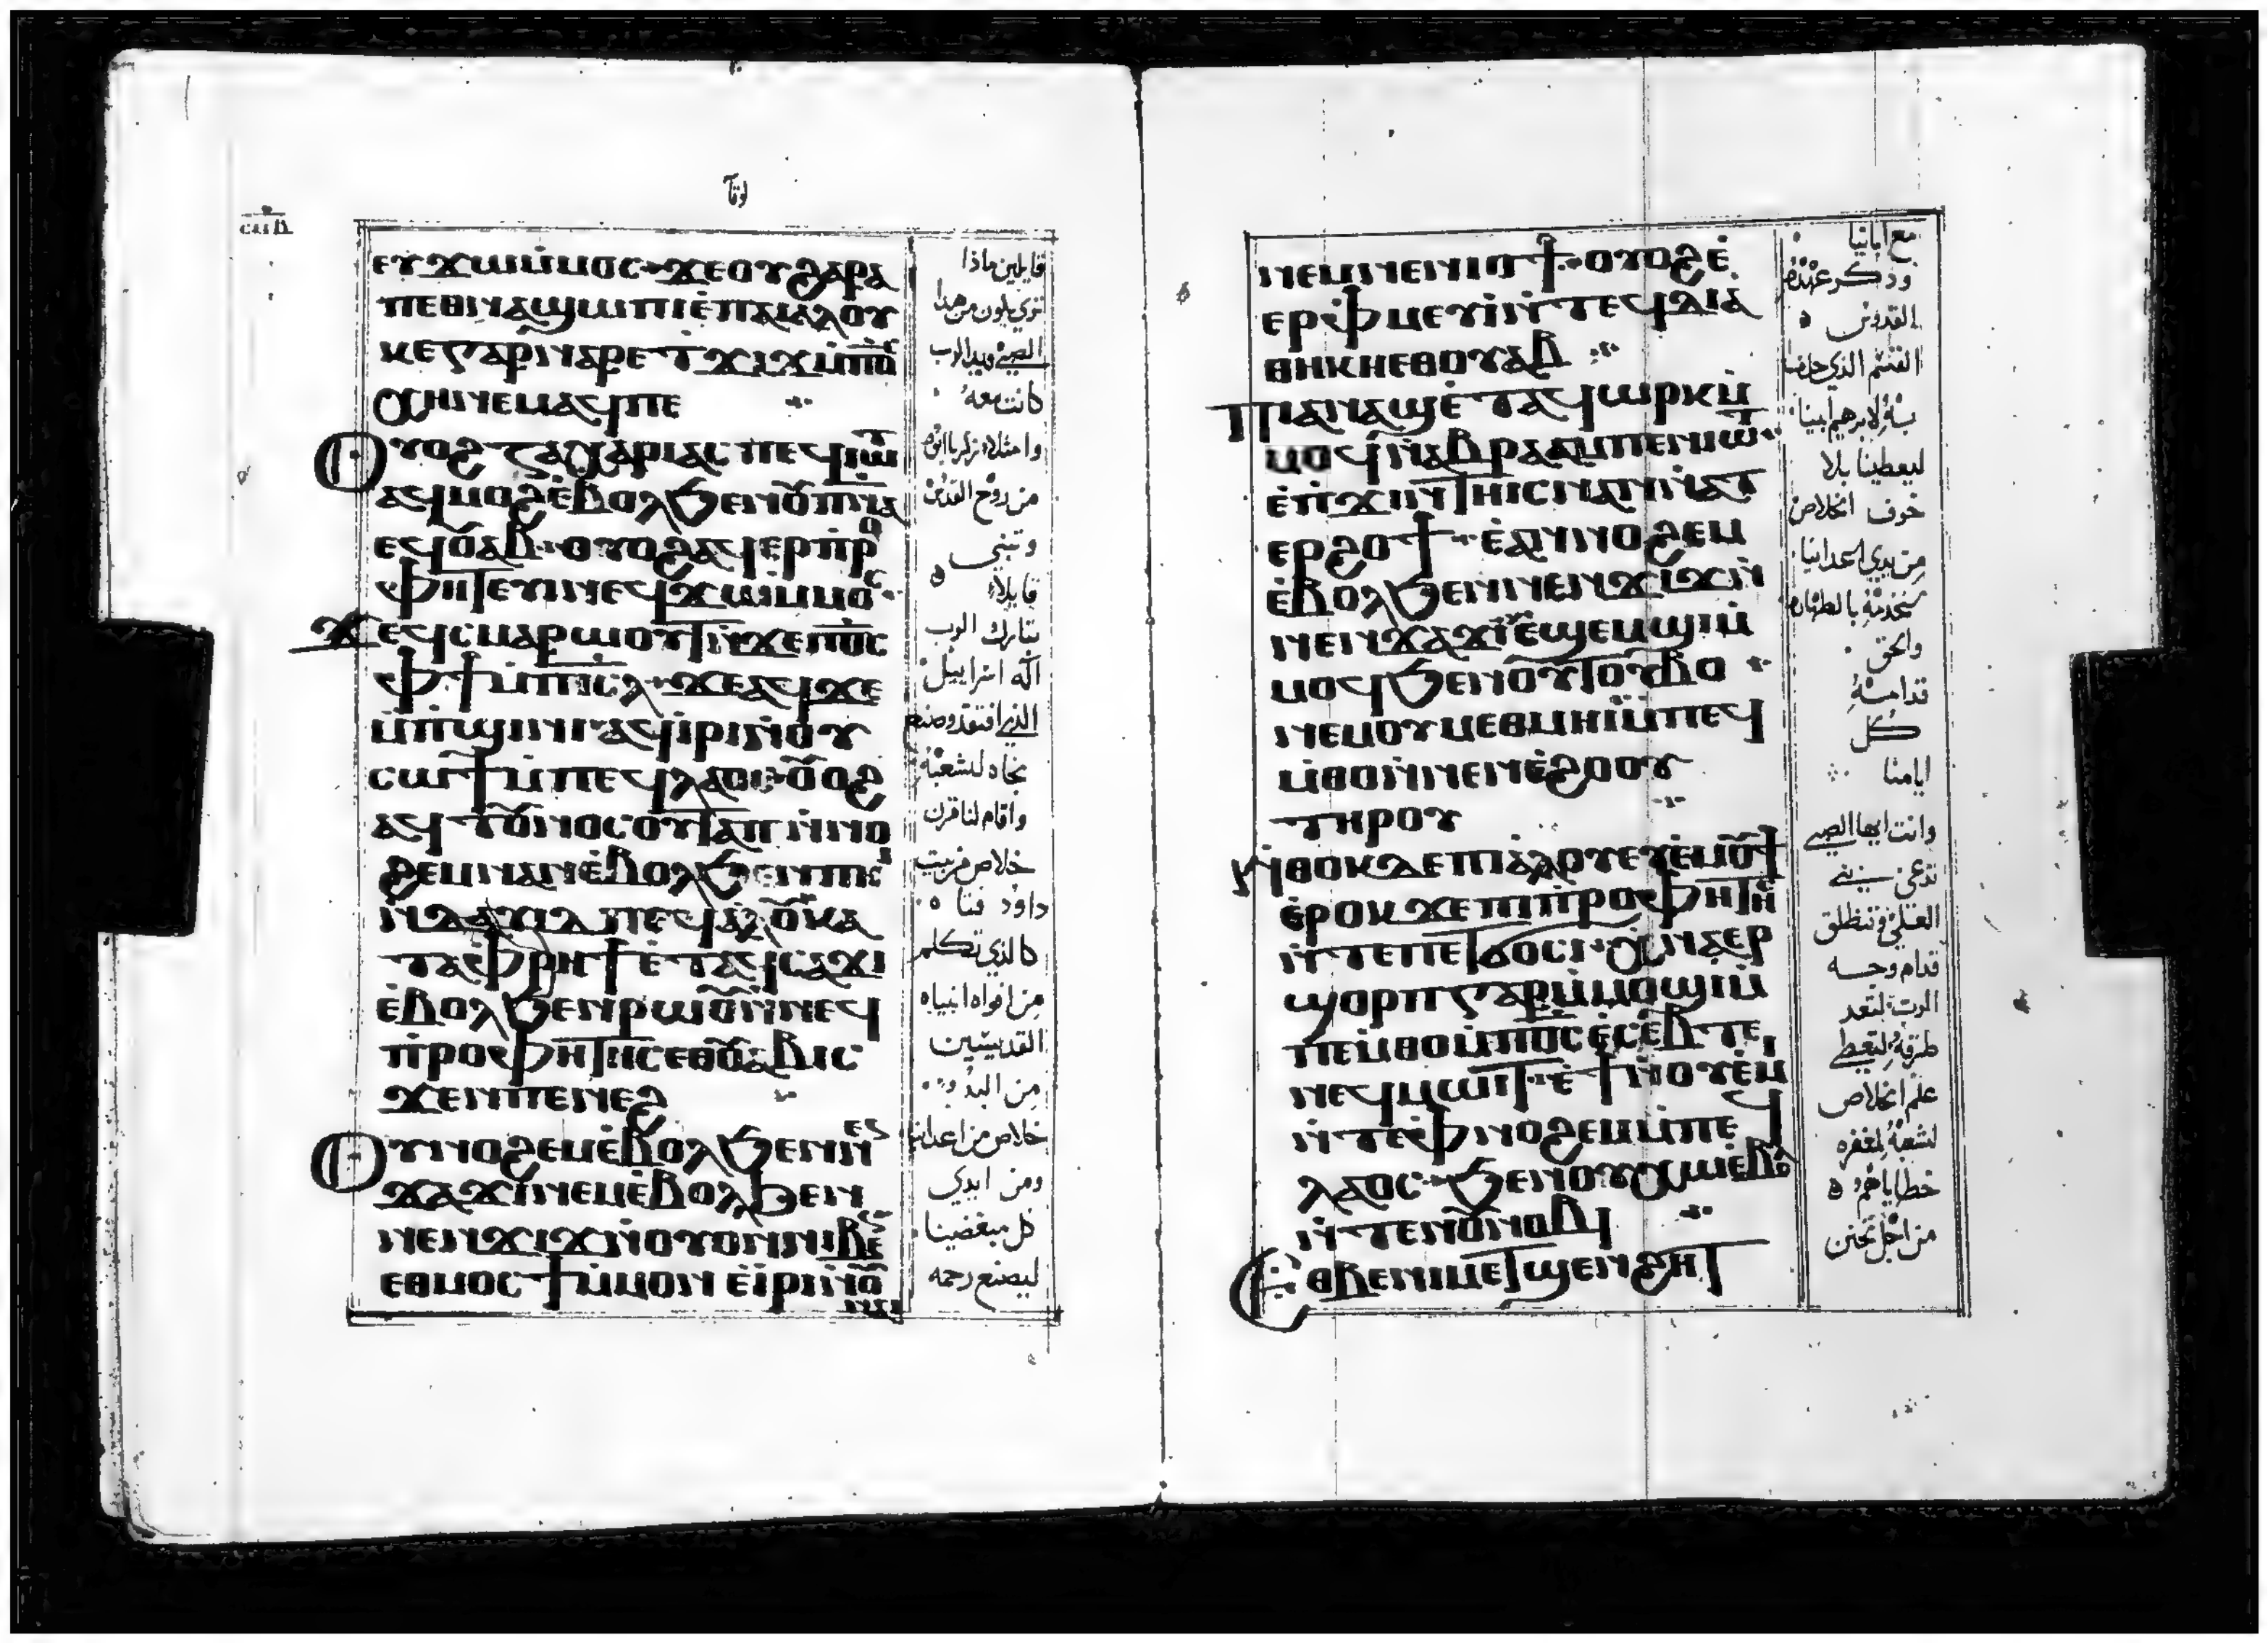 لوقا
ⲥⲛⲃ
ⲉⲩϫⲱⲙ̇ⲙⲟⲥ ϫⲉⲟⲩϩⲁⲣⲁ
ⲡⲉⲑⲛⲁϣⲱⲡⲓⲉ̇ⲡⲁⲓⲁⲗⲟⲩ
ⲕⲉⲅⲁⲣⲛⲁⲣⲉⲧϫⲓϫⲙ̇ⲡⲟ̅ⲥ̅
ⲭⲏⲛⲉⲙⲁϥⲡⲉ
ⲟⲩⲟϩ ⲍⲁⲭⲁⲣⲓⲁⲥ ⲡⲉϥⲓⲱⲧ
ⲁϥⲙⲟϩⲉ̇ⲃⲟⲗϧⲉⲛⲟⲩⲡ̅ⲛ̅ⲁ̅
ⲉϥⲟⲩⲁⲃ ⲟⲩⲟϩⲁϥⲉⲣⲡ̇ⲣⲟ
ⲫⲏⲧⲉⲩⲓⲛⲉϥϫⲱⲙ̇ⲙⲟⲥ
ϫⲉϥⲥⲙⲁⲣⲱⲟⲩⲧⲛ̇ϫⲉⲡⲟ̅ⲥ̅
ⲫϯⲙ̇ⲡⲓⲥ̅ⲗ̅ ϫⲉⲁϥϫⲉ
ⲙ̇ⲡ̇ϣⲓⲛⲓ ⲁϥⲓ̇ⲣⲓⲛ̇ⲟⲩ
ⲥⲱϯⲙ̇ⲡⲉϥⲗⲁⲟⲥ ⲟⲩⲟϩ
ⲁϥⲧⲟⲩⲛⲟⲥⲟⲩⲧⲁⲡ ⲛ̇ⲛⲟ
ϩⲉⲙⲛⲁⲛⲉ̇ⲃⲟⲗϧⲉⲛⲡⲏⲓ
ⲛ̇ⲇⲁⲩⲓⲇ ⲡⲉϥⲁⲗⲟⲩ ⲕⲁ
ⲧⲁⲫⲣⲏϯ ⲉ̇ⲧⲁϥⲥⲁϫⲓ
ⲉ̇ⲃⲟⲗϧⲉⲛⲣⲱⲟⲩⲛ̇ⲛⲉϥ
ⲡ̇ⲣⲟⲫⲏⲧⲏⲥⲉⲑⲟⲩⲁⲃⲓⲥ
ϫⲉⲛⲡⲉⲛⲉϩ
ⲟⲩⲛⲟϩⲉⲙⲉ̇ⲃⲟⲗϧⲉⲛⲛⲉⲛ
ϫⲁϫⲓⲛⲉⲙⲉ̇ⲃⲟⲗϧⲉⲛ
ⲛⲉⲛϫⲓϫⲛ̇ⲟⲩⲟⲛⲛⲓⲃⲉⲛ
ⲉⲑⲙⲟⲥϯⲙ̇ⲙⲟⲛ ⲉⲓ̇ⲣⲓⲛ̇ⲟⲩ
ⲛⲁⲓ
قايلين ماذا
تري يكون من هدا
الصبي ويد الرب
كانت معه
وامتلاء زكريا ابوه
من روح القدس
وتنبي
قايلاء
تبارك الرب
اله اسراييل
الذي افتقد وصنع
نجاه لشعبه
واقام لنا قرن
خلاص من بيت
داوود فتاه
كالذي تكلم
من افواه انبياه
القديسين
من البدو
خلاص من اعداينا
ومن ايدي
كل مبغضينا
ليصنع رحمه
ⲛⲉⲙⲛⲉⲛⲓⲟϯ ⲟⲩⲟϩⲉ̇
ⲉⲣⲫ̇ⲙⲉⲩⲓ̇ⲛ̇ⲧⲉϥⲇⲓⲁ
ⲑⲏⲕⲏⲉⲑⲟⲩⲁⲃ
ⲡⲓⲁⲛⲁϣⲉ̇ⲧⲁϥⲱⲣⲕⲙ̇
ⲙⲟϥⲛ̇ⲁⲃⲣⲁⲁⲙⲡⲉⲛⲓⲱⲧ
ⲉ̇ⲡ̇ϫⲓⲛⲧⲏⲓⲥⲛⲁⲛⲛ̇ⲁⲧ
ⲉⲣϩⲟϯ ⲉ̇ⲁⲛⲛⲟϩⲉⲙ
ⲉ̇ⲃⲟⲗϧⲉⲛⲛⲉⲛϫⲓϫⲛ̇
ⲛⲉⲛϫⲁϫⲓⲉ̇ϣⲉⲙϣⲓⲙ̇
ⲙⲟϥϧⲉⲛⲟⲩⲧⲟⲩⲃⲟ
ⲛⲉⲙⲟⲩⲙⲉⲑⲙⲏⲓⲙ̇ⲡⲉϥ
ⲙ̇ⲑⲟⲛ̇ⲛⲉⲛⲉ̇ϩⲟⲟⲩ
ⲧⲏⲣⲟⲩ
ⲛ̇ⲑⲟⲕⲇⲉⲡⲓⲁ̇ⲗⲟⲩⲉⲩⲉ̇ⲙⲟⲩϯ
ⲉ̇ⲣⲟⲕ ϫⲉⲡⲓⲡ̇ⲣⲟⲫⲏⲧⲏⲥ
ⲛ̇ⲧⲉⲡⲉⲧϭⲟⲥⲓ ⲭⲛⲁⲉⲣ
ϣⲟⲣⲡⲅⲁⲣⲙ̇ⲙⲟϣⲓⲙ̇
ⲡⲉⲙ̇ⲑⲟⲙ̇ⲡⲟ̅ⲥ̅ⲉ̇ⲥⲉⲃⲧⲉ
ⲛⲉϥⲙⲱⲓⲧ ⲉ̇ϯⲛ̇ⲟⲩⲉ̇ⲙⲓ
ⲛ̇ⲧⲉⲫ̇ⲛⲟϩⲉⲙⲙ̇ⲡⲉϥ
ⲗⲁⲟⲥ ϧⲉⲛⲟⲩⲭⲱⲉ̇ⲃⲟⲗ
ⲛ̇ⲧⲉⲛⲟⲩⲛⲟⲃⲓ
ⲉⲑⲃⲉⲛⲓⲙⲉⲧϣⲉⲛϩⲏⲧ
مع اباينا
وذكر عهده
القدوس
القسم الذي حلف
به لابرهيم ابينا
ليعطينا بلا
خوف الخلاص
من يدي اعداينا
نخدمه بالطهاره
والحق
قدامه
كل
ايامنا
وانت ايها الصبي
تدعي نبي
العلي وتنطلق
قدام وجه
الرب لتعد
طرقه لتعطي
علم الخلاص
لشعبه لمغفره
خطاياهم
من اجل تحنن